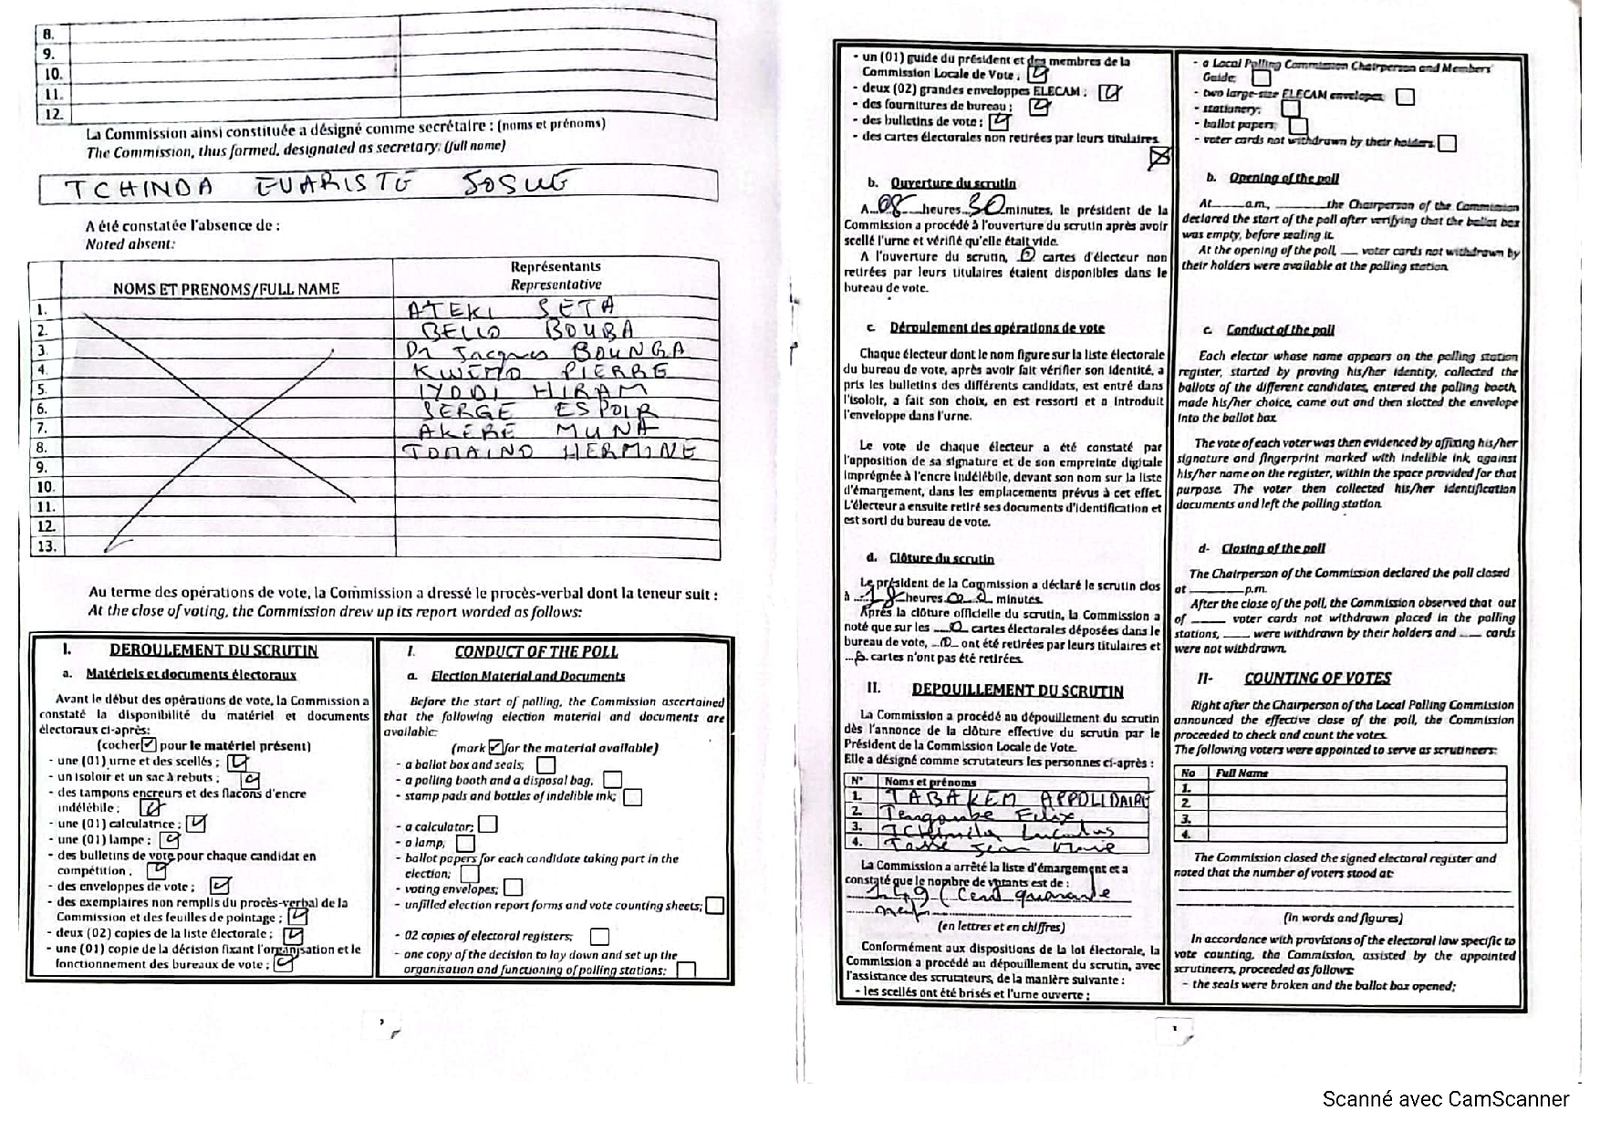 8.
9.
10.
11.
12.
La Commission ainsi constituée a désigné comme secrétaire : (noms et prénoms)
The Commission, thus formed, designated as secretary: (full name)
TCHINDA EVARISTE JOSUE
A été constatée l'absence de :
Noted absent:
NOMS ET PRENOMS/FULL NAME
Représentants
Representative
1. ATEKI SETA
2. BELLO BOUBA
3. Dr Jacques BOUNGA
4. KWEMO PIERRE
5. IYODI HIRAM
6. SERGE ESPOIR
7. AKERE MUNA
8. TOMAINO HERMINE
9.
10.
11.
12.
13.
Au terme des opérations de vote, la Commission a dressé le procès-verbal dont la teneur suit :
At the close of voting, the Commission drew up its report worded as follows:
I. DEROULEMENT DU SCRUTIN
a. Matériels et documents électoraux
Avant le début des opérations de vote, la Commission a
constaté la disponibilité du matériel et documents
électoraux ci-après:
(cocher ☑ pour le matériel présent)
- une (01) urne et des scellés ; ☑
- un isoloir et un sac à rebuts ; ☑
- des tampons encreurs et des flacons d'encre
indélébile ; ☑
- une (01) calculatrice ; ☑
- une (01) lampe ; ☑
- des bulletins de vote pour chaque candidat en
compétition . ☑
- des enveloppes de vote ; ☑
- des exemplaires non remplis du procès-verbal de la
Commission et des feuilles de pointage ; ☑
- deux (02) copies de la liste électorale ; ☑
- une (01) copie de la décision fixant l'organisation et le
fonctionnement des bureaux de vote ; ☑
I. CONDUCT OF THE POLL
a. Election Material and Documents
Before the start of polling, the Commission ascertained
that the following election material and documents are
available:
(mark ☑ for the material available)
- a ballot box and seals; ☐
- a polling booth and a disposal bag. ☐
- stamp pads and bottles of indelible ink; ☐
- a calculator; ☐
- a lamp, ☐
- ballot papers for each candidate taking part in the
election; ☐
- voting envelopes; ☐
- unfilled election report forms and vote counting sheets; ☐
- 02 copies of electoral registers; ☐
- one copy of the decision to lay down and set up the
organisation and functioning of polling stations: ☐
- un (01) guide du président et des membres de la
Commission Locale de Vote ; ☑
- deux (02) grandes enveloppes ELECAM ; ☑
- des fournitures de bureau ; ☑
- des bulletins de vote ; ☑
- des cartes électorales non retirées par leurs titulaires.
☒
b. Ouverture du scrutin
A...08...heures...30 minutes, le président de la
Commission a procédé à l'ouverture du scrutin après avoir
scellé l'urne et vérifié qu'elle était vide.
A l'ouverture du scrutin, 0 cartes d'électeur non
retirées par leurs titulaires étaient disponibles dans le
bureau de vote.
c. Déroulement des opérations de vote
Chaque électeur dont le nom figure sur la liste électorale
du bureau de vote, après avoir fait vérifier son identité, a
pris les bulletins des différents candidats, est entré dans
l'isoloir, a fait son choix, en est ressorti et a introduit
l'enveloppe dans l'urne.
Le vote de chaque électeur a été constaté par
l'apposition de sa signature et de son empreinte digitale
imprégnée à l'encre indélébile, devant son nom sur la liste
d'émargement, dans les emplacements prévus à cet effet.
L'électeur a ensuite retiré ses documents d'identification et
est sorti du bureau de vote.
d. Clôture du scrutin
Le président de la Commission a déclaré le scrutin clos
à ...18...heures...00... minutes.
Après la clôture officielle du scrutin, la Commission a
noté que sur les ...0... cartes électorales déposées dans le
bureau de vote, ...0... ont été retirées par leurs titulaires et
...0... cartes n'ont pas été retirées.
II. DEPOUILLEMENT DU SCRUTIN
La Commission a procédé au dépouillement du scrutin
dès l'annonce de la clôture effective du scrutin par le
Président de la Commission Locale de Vote.
Elle a désigné comme scrutateurs les personnes ci-après :
N° Noms et prénoms
1. TABAKEM APPOLINAIRE
2. Felix
3.
4. Jean Marie
La Commission a arrêté la liste d'émargement et a
constaté que le nombre de votants est de :
149 (Cent quarante
neuf)
(en lettres et en chiffres)
Conformément aux dispositions de la loi électorale, la
Commission a procédé au dépouillement du scrutin, avec
l'assistance des scrutateurs, de la manière suivante :
- les scellés ont été brisés et l'urne ouverte ;
- a Local Polling Commission Chairperson and Members'
Guide; ☐
- two large-size ELECAM envelopes ☐
- stationery; ☐
- ballot papers; ☐
- voter cards not withdrawn by their holders. ☐
b. Opening of the poll
At______a.m., ________the Chairperson of the Commission
declared the start of the poll after verifying that the ballot box
was empty, before sealing it.
At the opening of the poll, ___ voter cards not withdrawn by
their holders were available at the polling station.
c. Conduct of the poll
Each elector whose name appears on the polling station
register, started by proving his/her identity, collected the
ballots of the different candidates, entered the polling booth,
made his/her choice, came out and then slotted the envelope
into the ballot box.
The vote of each voter was then evidenced by affixing his/her
signature and fingerprint marked with indelible ink, against
his/her name on the register, within the space provided for that
purpose. The voter then collected his/her identification
documents and left the polling station.
d- Closing of the poll
The Chairperson of the Commission declared the poll closed
at _________p.m.
After the close of the poll, the Commission observed that out
of _____ voter cards not withdrawn placed in the polling
stations, ____ were withdrawn by their holders and ____ cards
were not withdrawn.
II- COUNTING OF VOTES
Right after the Chairperson of the Local Polling Commission
announced the effective close of the poll, the Commission
proceeded to check and count the votes.
The following voters were appointed to serve as scrutineers:
No Full Name
1.
2.
3.
4.
The Commission closed the signed electoral register and
noted that the number of voters stood at:
(in words and figures)
In accordance with provisions of the electoral law specific to
vote counting, the Commission, assisted by the appointed
scrutineers, proceeded as follows:
- the seals were broken and the ballot box opened;
Scanné avec CamScanner